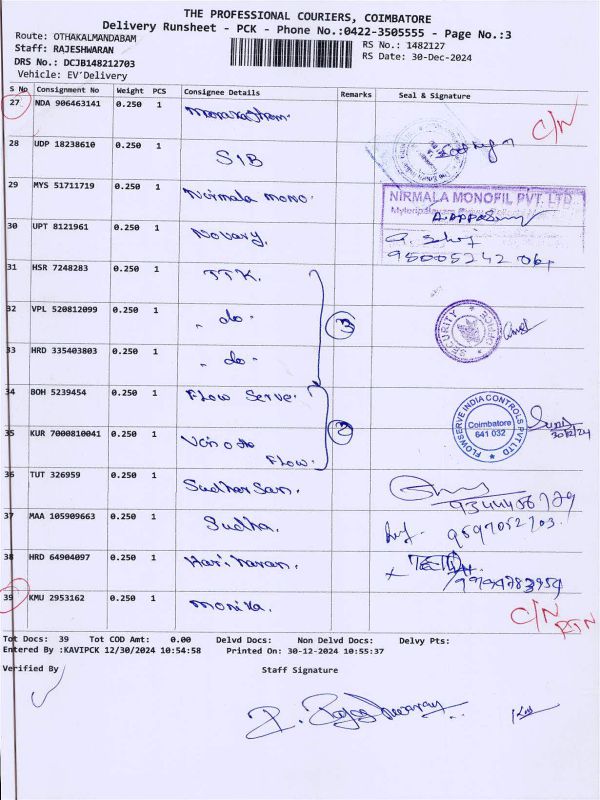 THE PROFESSIONAL COURIERS, COIMBATORE
Delivery Runsheet - PCK - Phone No.:0422-3505555 - Page No.:3
Route: OTHAKALMANDABAM
RS No.: 1482127
Staff: RAJESHWARAN
RS Date: 30-Dec-2024
DRS No.: DCJB148212703
Vehicle: EV'Delivery
S No Consignment No Weight PCS Consignee Details Remarks Seal & Signature
27 NDA 906463141 0.250 1 C/N
28 UDP 18238610 0.250 1 SIB
29 MYS 51711719 0.250 1 Nirmala mono. NIRMALA MONOFIL PVT. LTD.
30 UPT 8121961 0.250 1 Novary.
31 HSR 7248283 0.250 1 TTK.
32 VPL 520812099 0.250 1 " do " 3 SECURITY OFFICE
33 HRD 335403803 0.250 1 " do "
34 BOH 5239454 0.250 1 Flow Serve. FLOWSERVE INDIA CONTROLS PVT LTD
Coimbatore
641 032
30/12/24
35 KUR 7000810041 0.250 1 Flow. 2
36 TUT 326959 0.250 1 Sudharsan.
37 MAA 105909663 0.250 1 Sudha.
38 HRD 64904097 0.250 1 Hariharan.
39 KMU 2953162 0.250 1 Monika. C/N RTN
Tot Docs: 39 Tot COD Amt: 0.00 Delvd Docs: Non Delvd Docs: Delvy Pts:
Entered By :KAVIPCK 12/30/2024 10:54:58 Printed On: 30-12-2024 10:55:37
Verified By Staff Signature